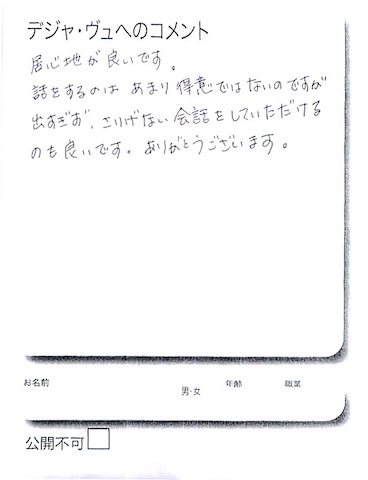 デジャ・ヴュへのコメント
居心地が良いです。
話をするのは あまり得意ではないのですが
出すぎず、さりげない会話をしていただける
のも良いです。ありがとうございます。
お名前
男・女
年齢
職業
公開不可